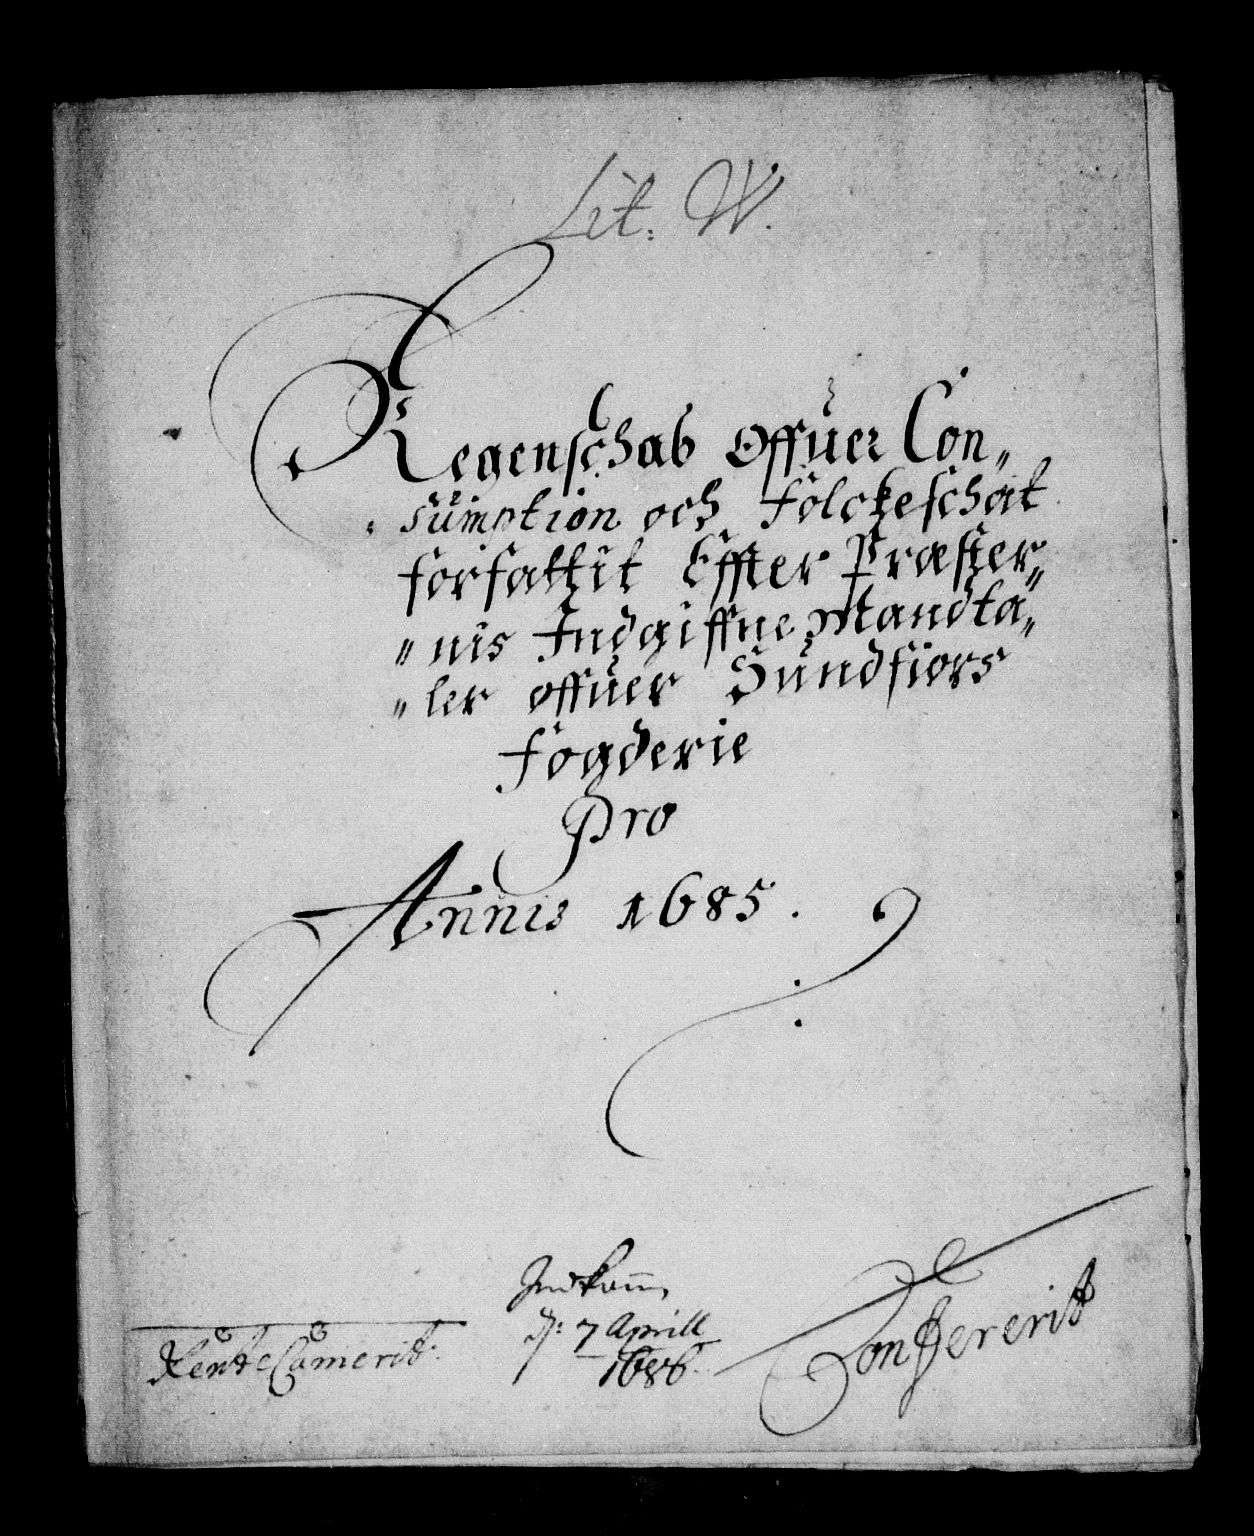 Lit. W.
Regenschab offuer Con„
sumption och Folckeschat
forfattit Effter Præster„
„nis Indgiffne Mandta„
„ler offuer Sundfiors
Fogderie
Pro
Annis 1685.
Indkom
d: 7 Aprill
1686.
Rente Camerit.
Confererit